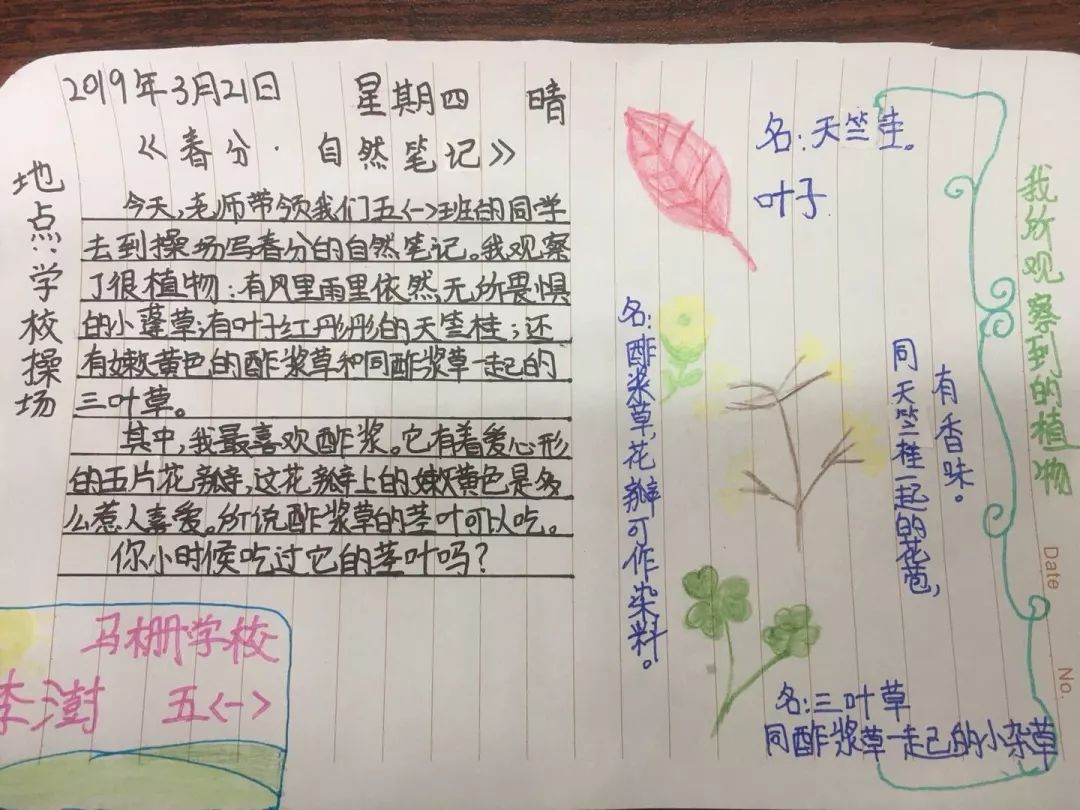 2019年3月21日 星期四 晴
《春分·自然笔记》
地点:学校操场
今天,老师带领我们五<一>班的同学
去到操场写春分的自然笔记。我观察
了很植物:有风里雨里依然,无所畏惧
的小蓬草;有叶子红彤彤的天竺桂;还
有嫩黄色的酢浆草和同酢浆草一起的
三叶草。
其中,我最喜欢酢浆。它有着爱心形
的五片花瓣,这花瓣上的嫩黄色是多
么惹人喜爱。所说酢浆草的茎叶可以吃。
你小时候吃过它的茎叶吗?
马栅学校
李澍 五<一>
名:天竺圭。
叶子
名:酢浆草,花瓣可作染料。
同天竺桂一起的花苞,
有香味。
名:三叶草
同酢浆草一走己的小杂草
我所观察到的植物
Date
No.